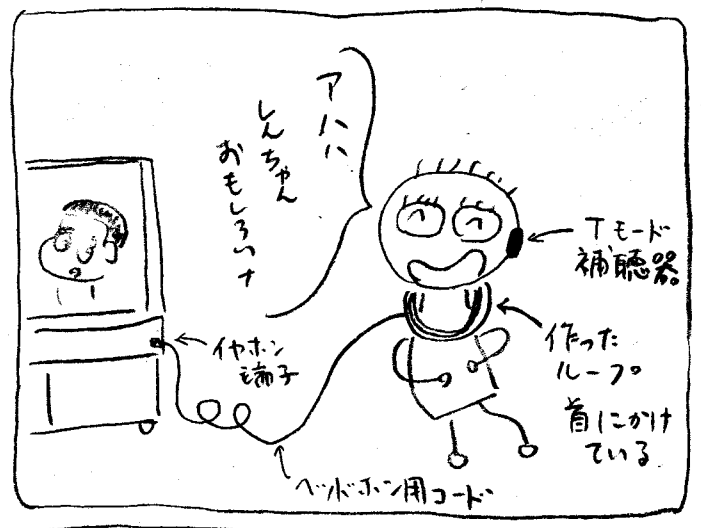 アハハ
しんちゃん
おもしろいナ
Tモード
補聴器
作った
ループ
首にかけ
ている
イヤホン
端子
ヘッドホン用コード